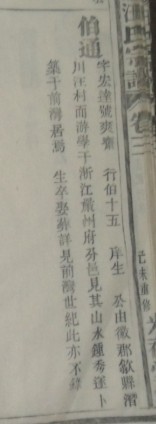 汪氏宗譜 卷三
己未重修
伯通
字宏達號爽齋 行伯十五 庠生 公由徽郡歙縣潛
川汪村而游學于浙江衢州府芬邑見其山水鍾秀遂卜
築于前灣居焉 生卒娶葬詳見前灣世紀此亦不錄